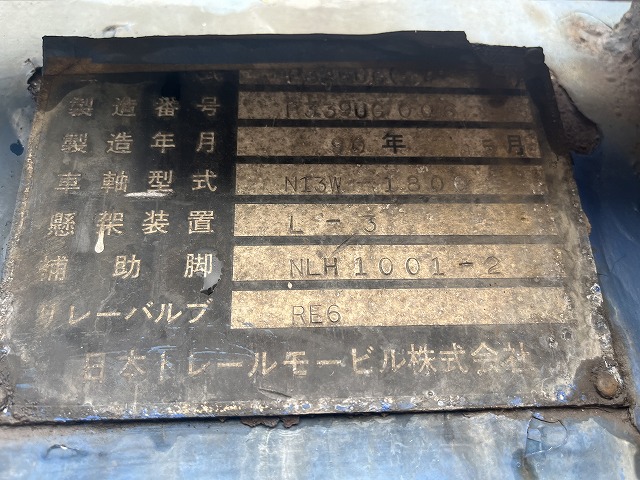 式
製造番号
製造年月 90年 5月
車軸型式 N13W-1808
懸架装置 L-3
補助脚 NLH1001-2
リレーバルブ RE6
日本トレールモービル株式会社